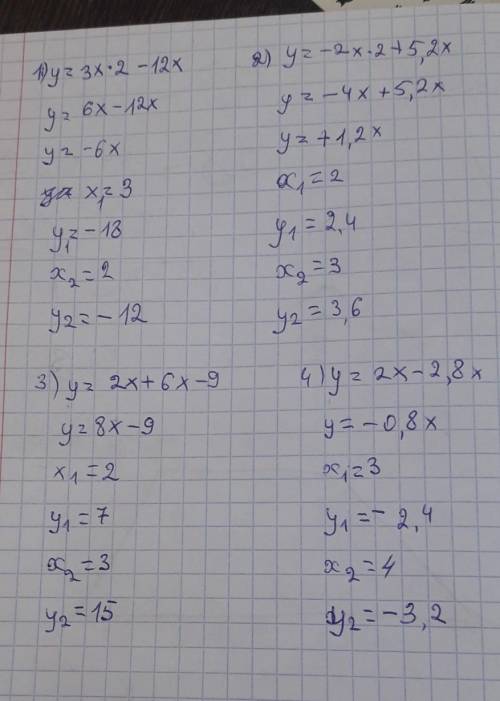 1) y = 3x·2 - 12x
y = 6x - 12x
y = -6x
x₁ = 3
y₁ = -18
x₂ = 2
y₂ = -12
2) y = -2x·2 + 5,2x
y = -4x + 5,2x
y = +1,2x
x₁ = 2
y₁ = 2,4
x₂ = 3
y₂ = 3,6
3) y = 2x + 6x - 9
y = 8x - 9
x₁ = 2
y₁ = 7
x₂ = 3
y₂ = 15
4) y = 2x - 2,8x
y = -0,8x
x₁ = 3
y₁ = -2,4
x₂ = 4
y₂ = -3,2